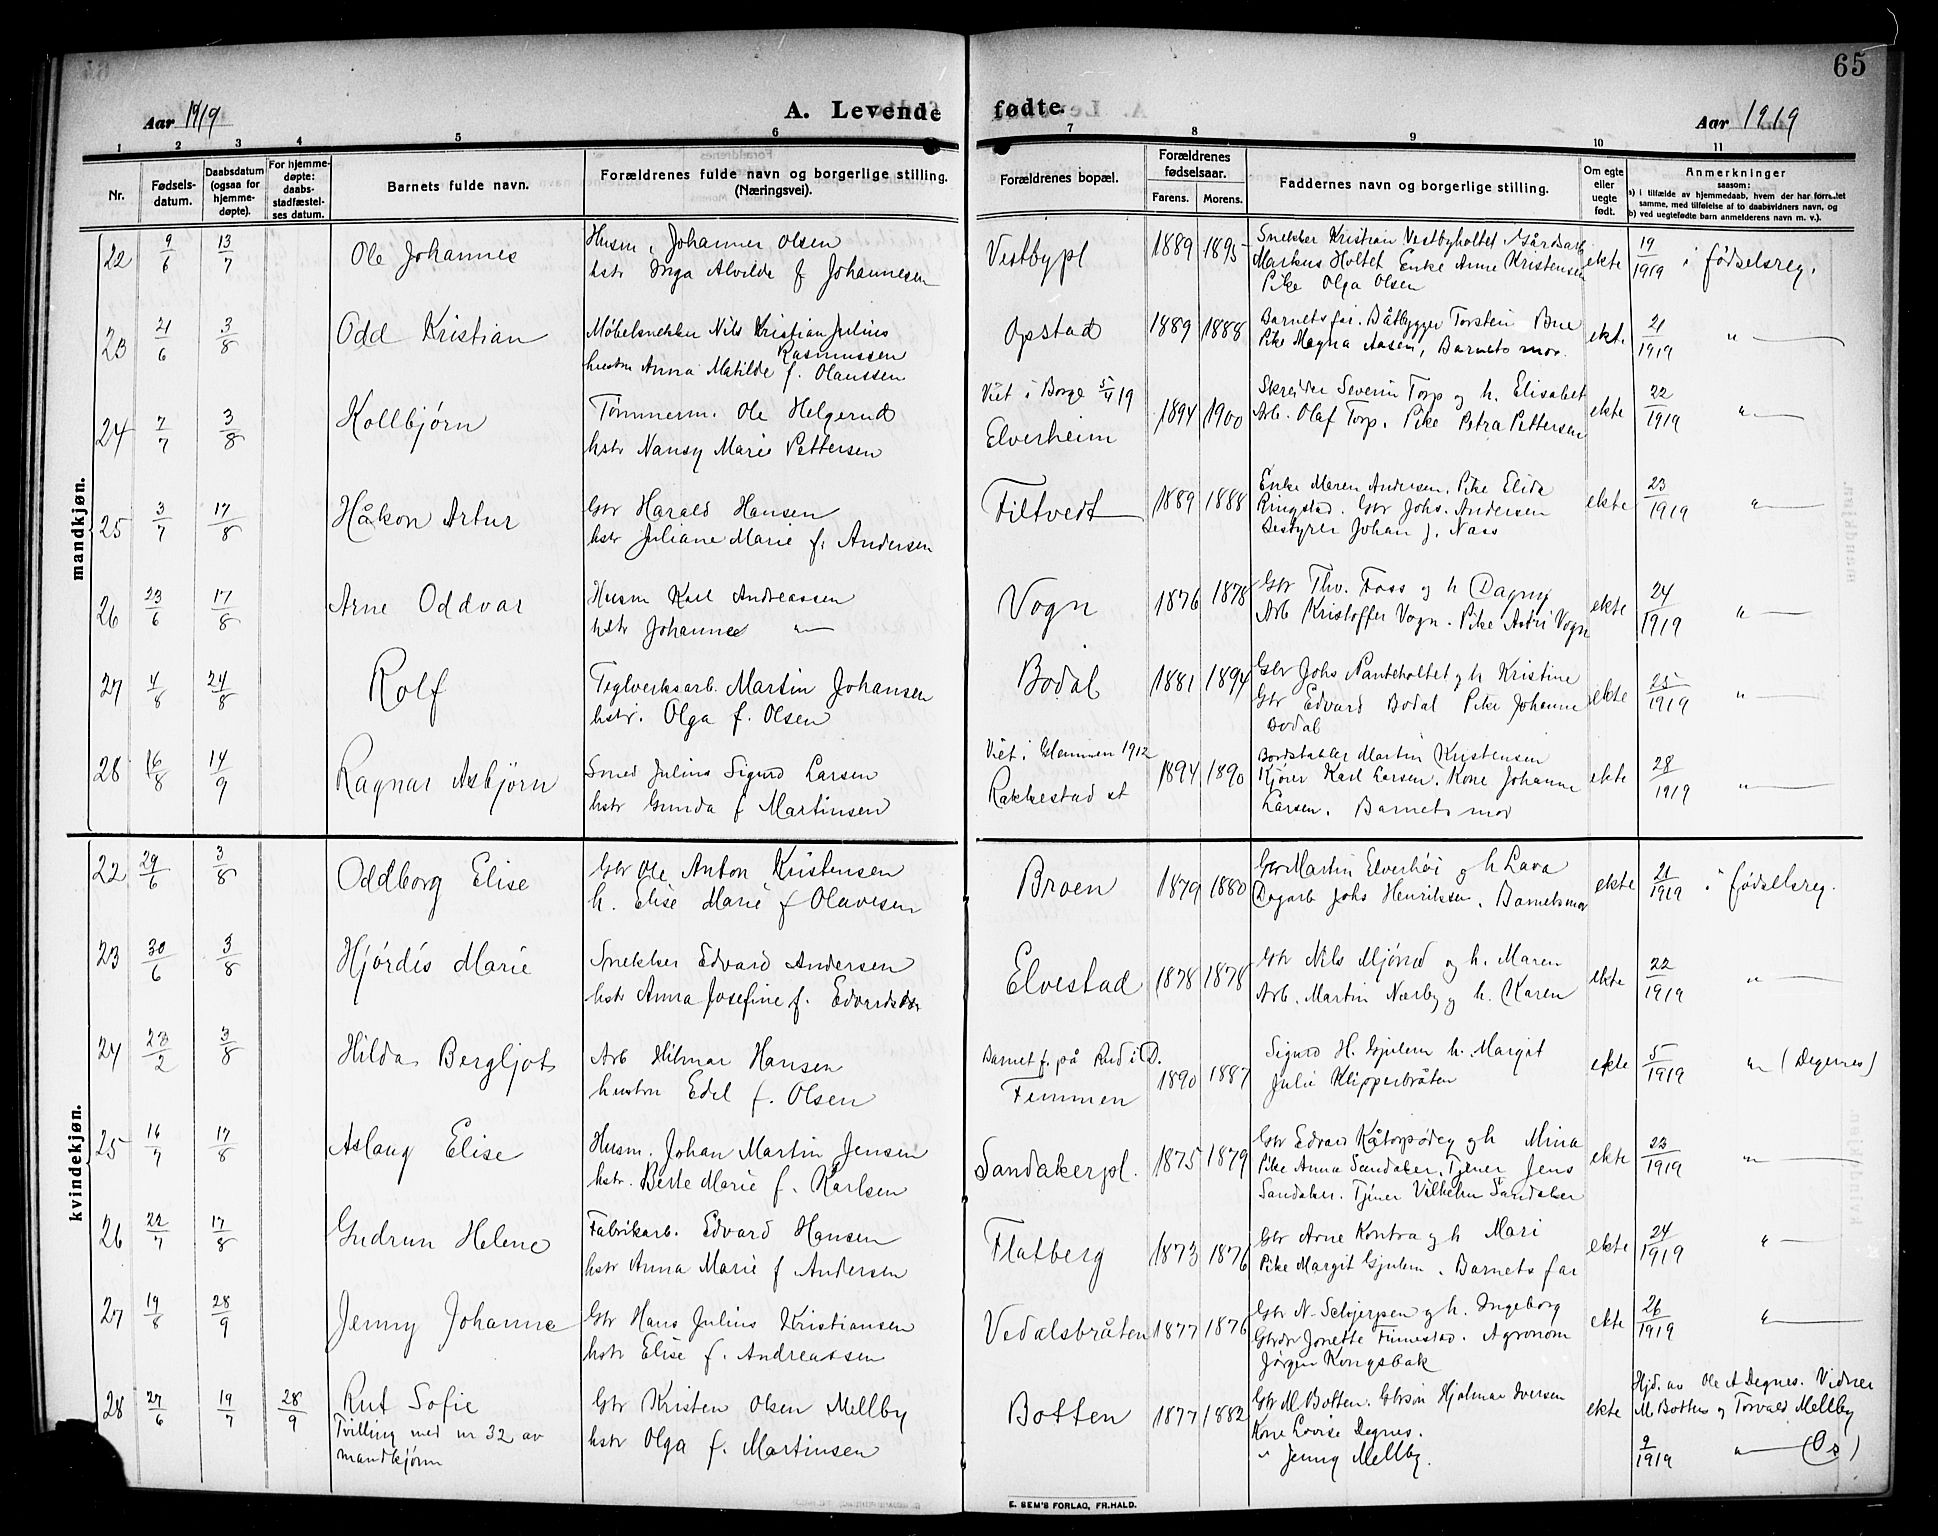 65
Aar 1919 A. Levende fødte. Aar 1919
1 2 3 4 5 6 7 8 9 10 11
Nr.
Fødsels-
datum.
Daabsdatum
(ogsaa for
hjemme-
døpte).
For hjemme-
døpte:
daabs-
stadfæstel-
ses datum.
Barnets fulde navn.
Forældrenes fulde navn og borgerlige stilling.
(Næringsvei).
Forældrenes bopæl.
Forældrenes
fødselsaar.
Farens. Morens.
Faddernes navn og borgerlige stilling.
Om egte
eller
uegte
født.
Anmerkninger
saasom:
a) i tilfælde av hjemmedaab, hvem der har forrettet
samme, med tilføielse af to daabsvidners navn, og
b) ved uegtefødte barn anmelderens navn m. v.).
mandkjøn.
22 9/6 13/7 Ole Johannes
Husm. Johannes Olsen
hstr Inga Alvilde f Johannesen
Vestbypl 1889 1895
Snekker Kristian Vestbyholtet Gårdarb
Markus Holtet Enke Anne Kristensen
Pike Olga Olsen
ekte 19/1919 i fødselsreg.
23 21/6 3/8 Odd Kristian
Møbelsnekker Nils Kristian Julius
Rasmussen
hustru Anna Matilde f. Olaussen
Opstad 1889 1888
Barnets far. Båtbygger Torstein Bue
Pike Magna Aasen, Barnets mor.
ekt. 21/1919 " —
24 7/7 3/8 Kollbjørn
Tømmerm. Ole Helgerud
hstr Nansy Marie Pettersen
Viet i Borge 5/4 19
Elverheim 1894 1900
Skreder Severin Torp og h. Elisabet
Arb. Olaf Torp. Pike Petra Pettersen
ekte 22/1919 " —
25 3/7 17/8 Håkon Artur
Gbr Harald Hansen
hstr Juliane Marie f. Andersen
Filtvedt 1889 1888
Enke Maren Andersen. Pike Elida
Ringstad. Gbr Johs. Andersen
Bestyrer Johan J. Nass
ekte 23/1919 " —
26 23/6 17/8 Arne Oddvar
Husm Karl Andreassen
hstr Johanne " —
Vogn 1876 1878
Gbr Thv. Foss og h Dagny
Arb Kristoffer Vogn. Pike Astri Vogn
ekte 24/1919 " —
27 4/8 24/8 Rolf
Teglverksarb. Martin Johansen
hstr. Olga f. Olsen
Bodal 1881 1894
Gbr Johs Panteholtet og h Kristine
Gbr Edvard Bodal Pike Johanne
Bodal
ekte 25/1919 " —
28 16/8 14/9 Ragnar Asbjørn
Smed Julius Sigurd Larsen
hstr Gunda f Martinsen
Viet i Glemmen 1912
Rakkestad st 1894 1890
Bordstabler Martin Kristensen
Kjører Karl Larsen. Kone Johanne
Larsen. Barnets mor
ekte 28/1919 " —
kvindekjøn.
22 29/6 3/8 Oddborg Elise
Gbr Ole Anton Kristensen
h. Elise Marie f Olavesen
Broen 1879 1880
Gbr Martin Elverhøi og h Lava
Dagarb Johs Henriksen. Barnets mor
ekte 21/1919 i fødselsreg.
23 30/6 3/8 Hjørdis Marie
Snekker Edvard Andersen
hstr Anna Josefine f. Edvardsdtr
Elvestad 1878 1878
Gbr Nils Mjørud og h. Maren
Arb. Martin Nærby og h. Karen
ekte 22/1919 " —
24 23/2 3/8 Hilda Bergljot
Arb Hilmar Hansen
hustru Edel f. Olsen
Barnet f. på Rud i D.
Femmen 1890 1887
Sigurd H. Gjulem h. Margit
Julie Klipperbråten
ekte 5/1919 " (Degernes)
25 16/7 17/8 Aslaug Elise
Husm. Johan Martin Jensen
hstr. Berte Marie f. Karlsen
Sandakerpl. 1875 1879
Gbr Edvard Kåtorpødeg og h Mina
Pike Anna Sandaker. Tjener Jens
Sandaker. Tjener Vilhelm Sandaker
ekte 23/1919 " —
26 22/7 17/8 Gudrun Helene
Fabrikarb. Edvard Hansen
hstr Anna Marie f Andersen
Flatberg 1873 1876
Gbr Arne Kontra og h Mari
Pike Margit Gjulem. Barnets far
ekte 24/1919 " —
27 19/8 28/9 Jenny Johanne
Gbr Hans Julius Kristiansen
hstr Elise f. Andreassen
Vedalsbråten 1877 1876
Gbr N. Schjerpen og h. Ingeborg
Gbrdr Jonette Finnestad. Agronom
Jørgen Kongsbak
ekte 26/1919 " —
28 27/6 19/7 28/9 Rut Sofie
Tvilling med nr 32 av
mandkjønn
Gbr Kristen Olsen Mellby
hstr Olga f. Martinsen
Botten 1877 1882
Gbr M. Botten. Gbrsøn Hjalmar Iversen
Kone Lovise Degnes.
" Jenny Mellby.
ekte
Hjd. av Ole A Degnes. Vidner
M Botten og Torvald Mellby
9/1919 " — (Os)
E. SEM'S FORLAG, FR.HALD.